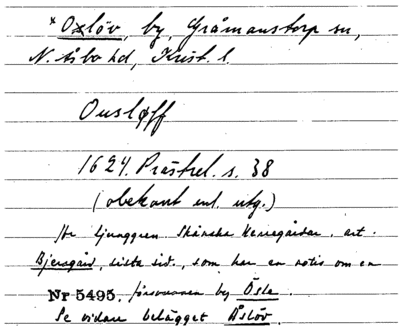 * Oxlöv, by, Gråmanstorp sn,
N. Åsbo hd, Krist. l.
Ousløff
1624. Prästrel. s. 38
(obekant enl. utg.)
Ljunggren Skånska Herregårdar, art.
Bjersgård, sista sid., som har en notis om en
Nr 5495. försvunnen by Ösla.
Se vidare belägget Åslöv.